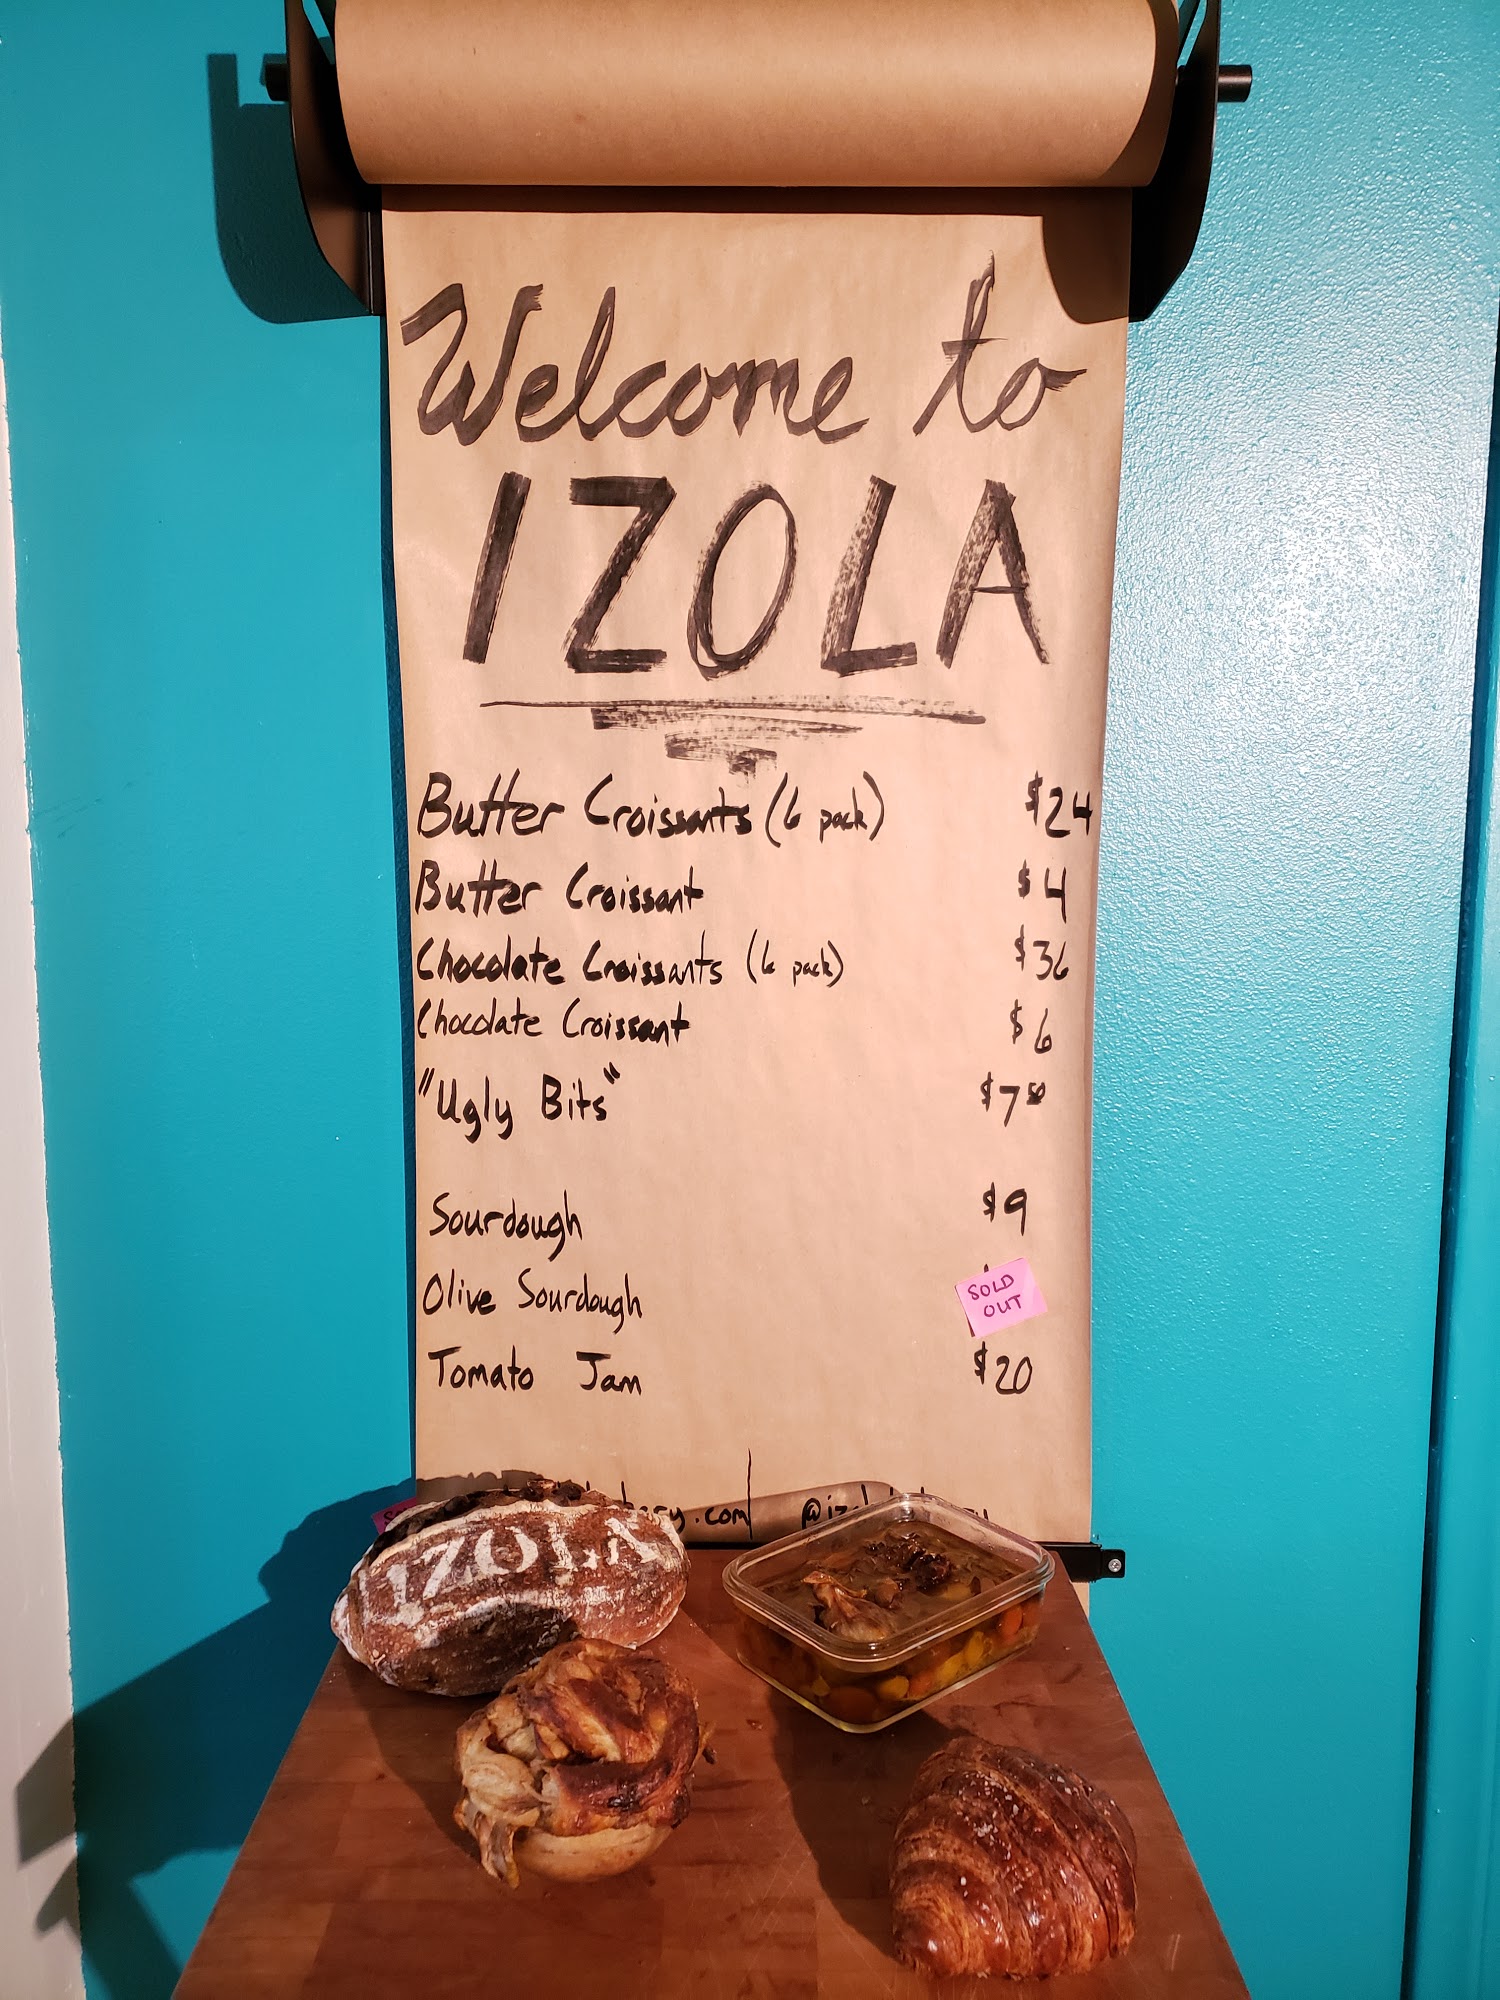 Welcome to
IZOLA
Butter Croissants (6 pack) $24
Butter Croissant $4
Chocolate Croissants (6 pack) $36
Chocolate Croissant $6
"Ugly Bits" $7.50
Sourdough $9
Olive Sourdough SOLD OUT
Tomato Jam $20
IZOLA